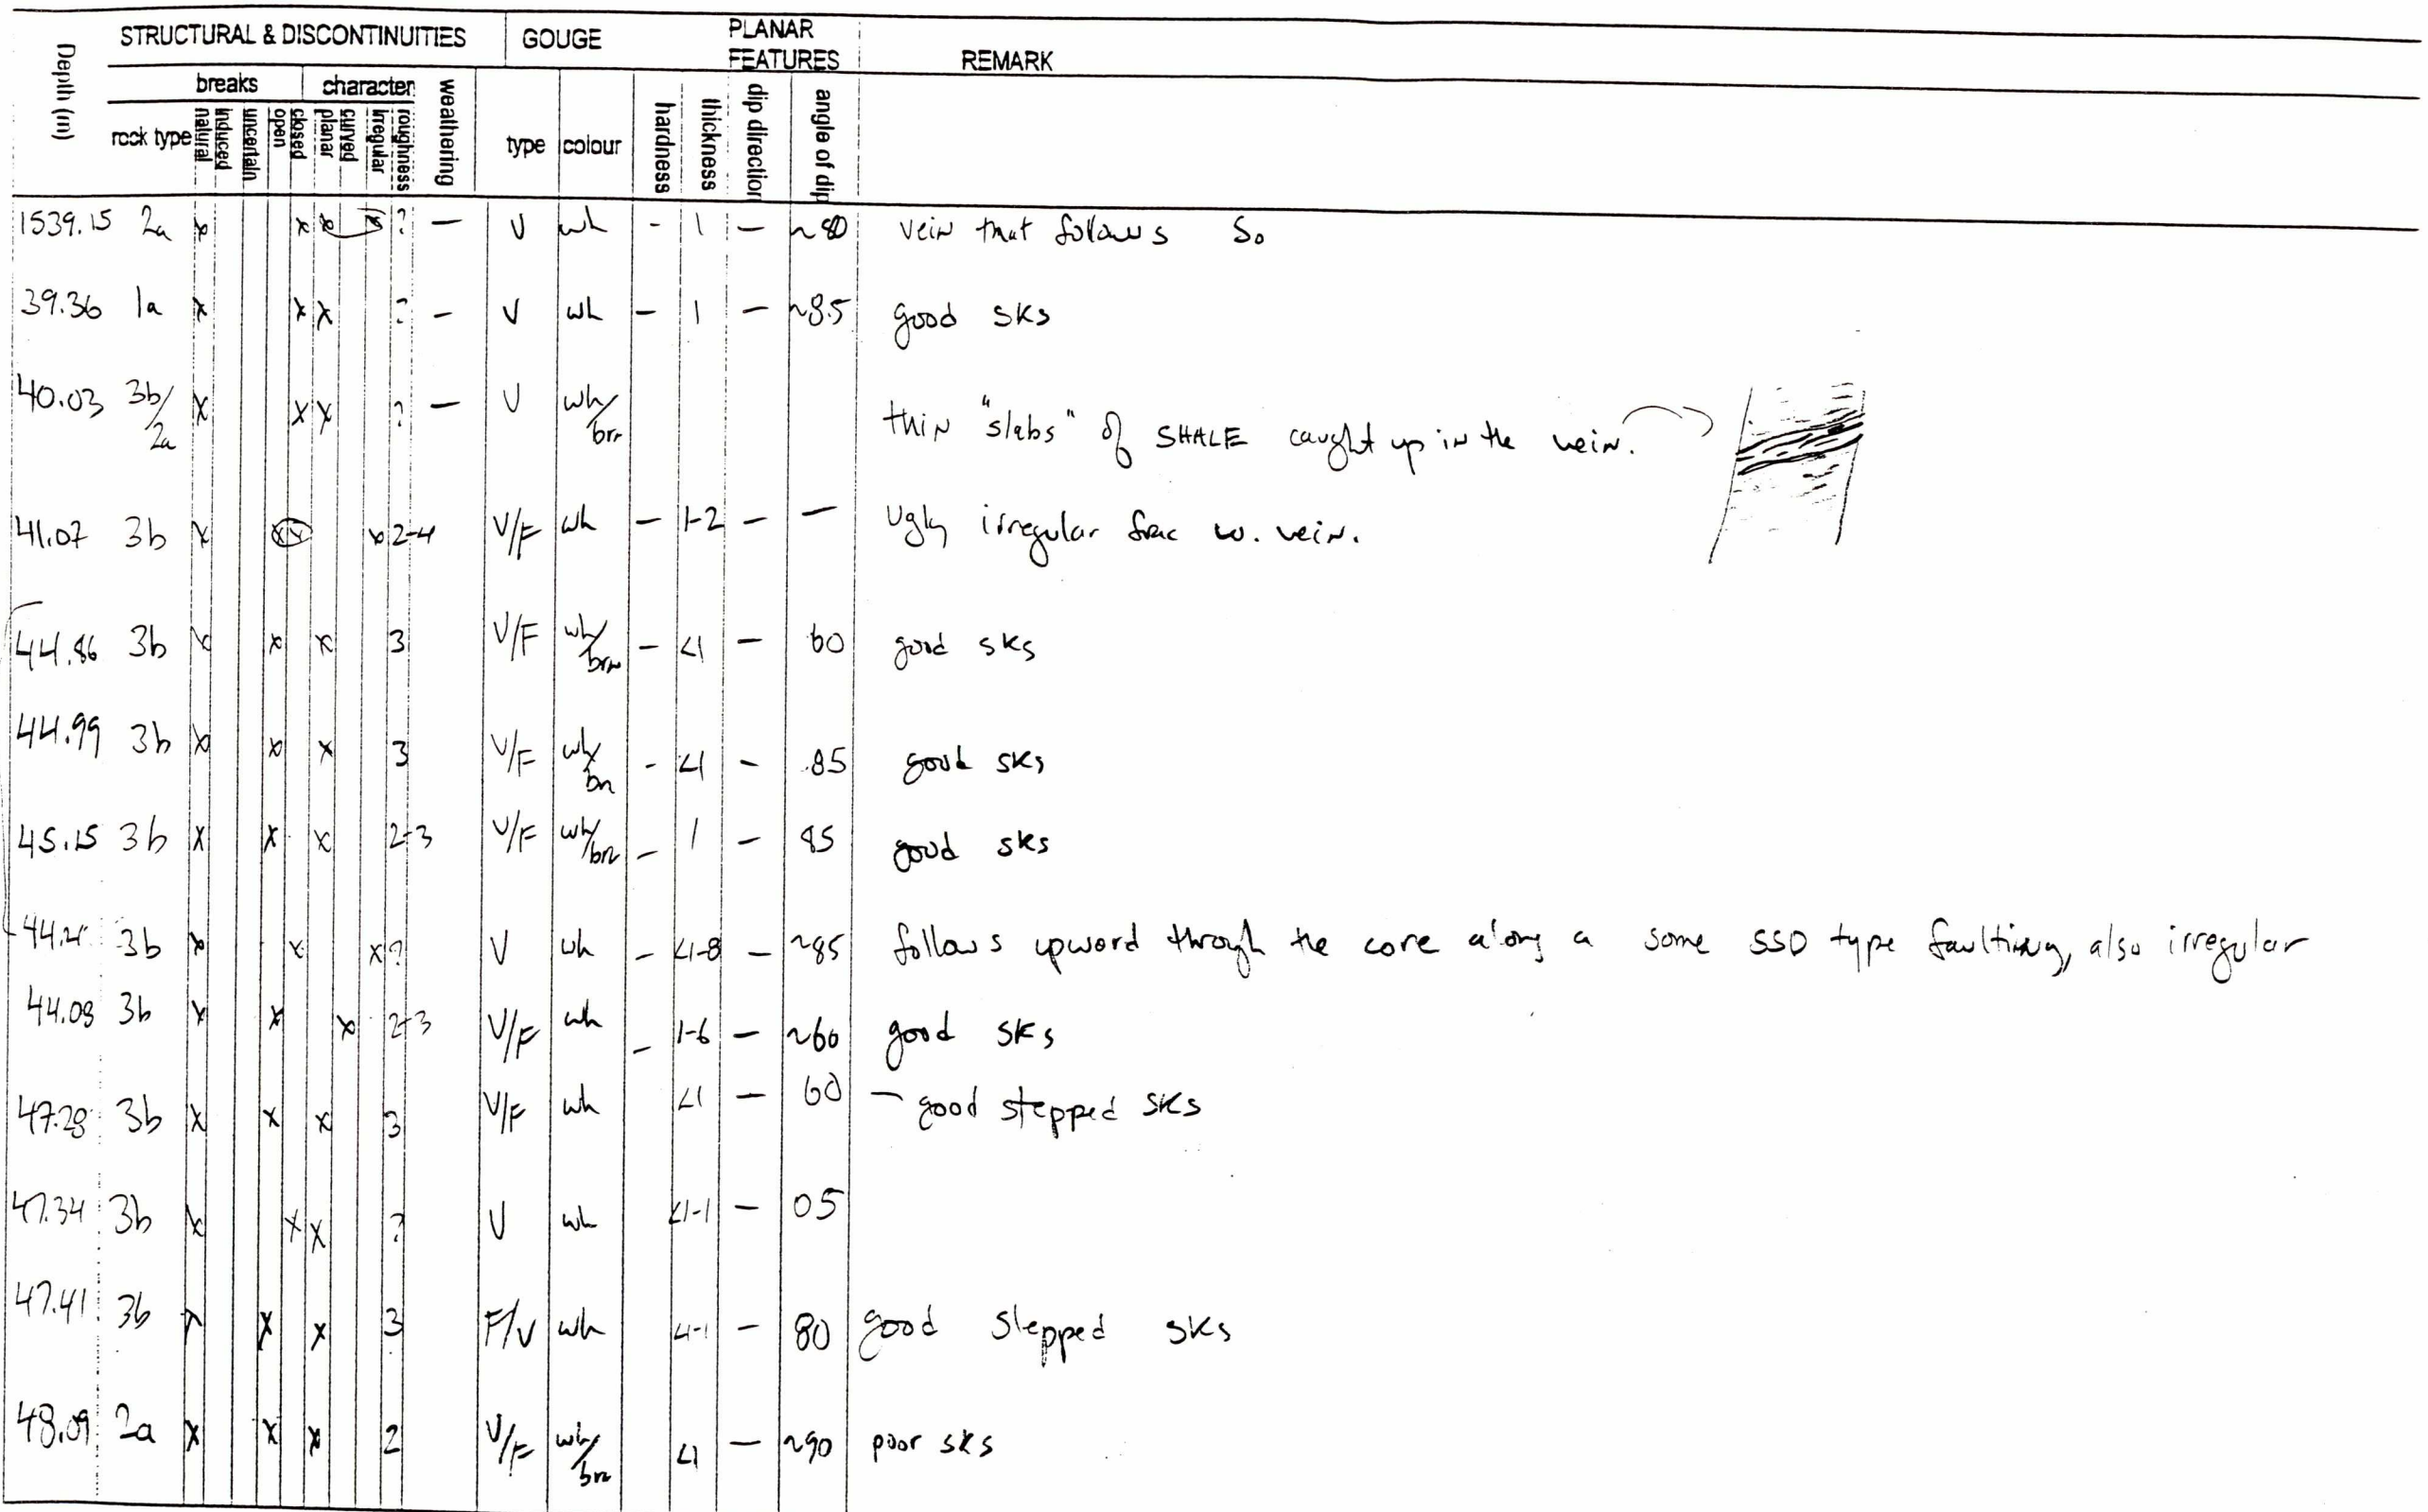 STRUCTURAL & DISCONTINUITIES GOUGE PLANAR FEATURES REMARK
Depth (m) breaks character weathering type colour hardness thickness dip direction angle of dip
rock type natural induced uncertain open closed planar curved irregular roughness
1539.15 2a x x x x ? — V wh - 1 — ~80 vein that follows So
39.36 1a x x x ? - V wh — 1 — ~85 good sks
40.03 3b/2a x x x ? — V wh/brn thin "slabs" of SHALE caught up in the vein.
41.07 3b x x x x 2-4 V/F wh — 1-2 — — Ugly irregular frac w. vein.
44.86 3b x x x 3 V/F wh/brn — <1 — 60 good sks
44.99 3b x x x 3 V/F wh/bn - <1 - 85 good sks
45.15 3b x x x 2-3 V/F wh/brn — 1 — 85 good sks
3b x x x ? V wh - <1-8 — ~85 follows upword through the core along a some SSD type faulting, also irregular
44.08 3b x x x 2-3 V/F wh — 1-6 — ~60 good sks
47.28 3b x x x 3 V/F wh <1 — 60 — good stepped sks
47.34 3b x x x ? V wh <1-1 — 05
47.41 3b x x x 3 F/V wh <1-1 — 80 good stepped sks
48.09 2a x x x 2 V/F wh/brn <1 — ~90 poor sks